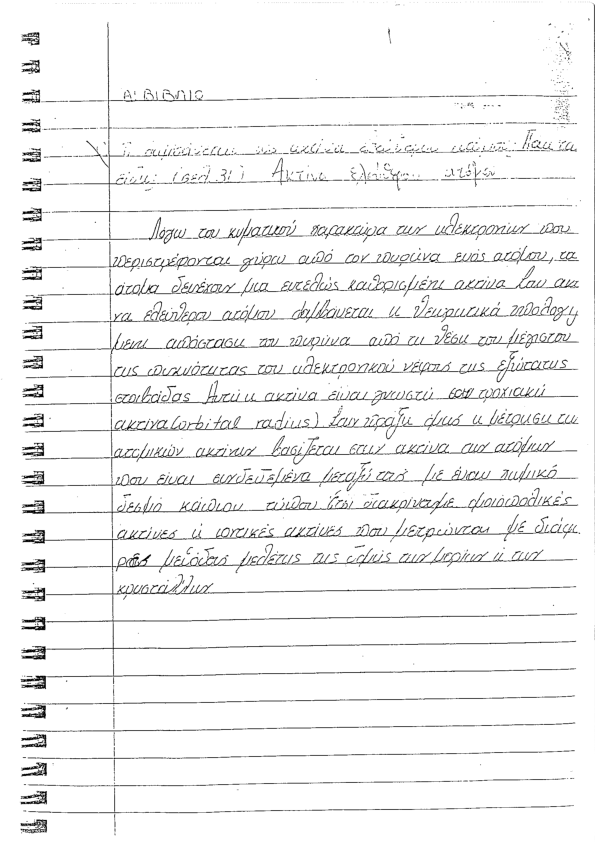 1
Α' ΒΙΒΛΙΟ
Τι ονομάζεται και ακτίνα
είναι; (σελ 31) Ακτίνα ελεύθερου ατόμου
Λόγω του κυματικού χαρακτήρα των ηλεκτρονίων που
περιστρέφονται γύρω από τον πυρήνα ενός ατόμου, τα
άτομα δεν έχουν μια εντελώς καθορισμένη ακτίνα Σαν ακτι
να ελεύθερου ατόμου λαμβάνεται η θεωρητικά υπολογισ
μένη απόσταση του πυρήνα από τη θέση του μέγιστου
της πυκνότητας του ηλεκτρονικού νέφους της εξώτατης
στοιβάδας Αυτή η ακτίνα είναι γνωστή σαν τροχιακή
ακτίνα (orbital radius) Στην πράξη όμως η μέτρηση των
ατομικών ακτίνων βασίζεται στην ακτίνα των ατόμων
που είναι συνδεδεμένα μεταξύ τους με έναν χημικό
δεσμό κάποιου τύπου Έτσι διακρίνουμε ομοιοπολικές
ακτίνες ή ιοντικές ακτίνες που μετρώνται με διάφο
ρες μεθόδους μελέτης της δομής των μορίων ή των
κρυστάλλων